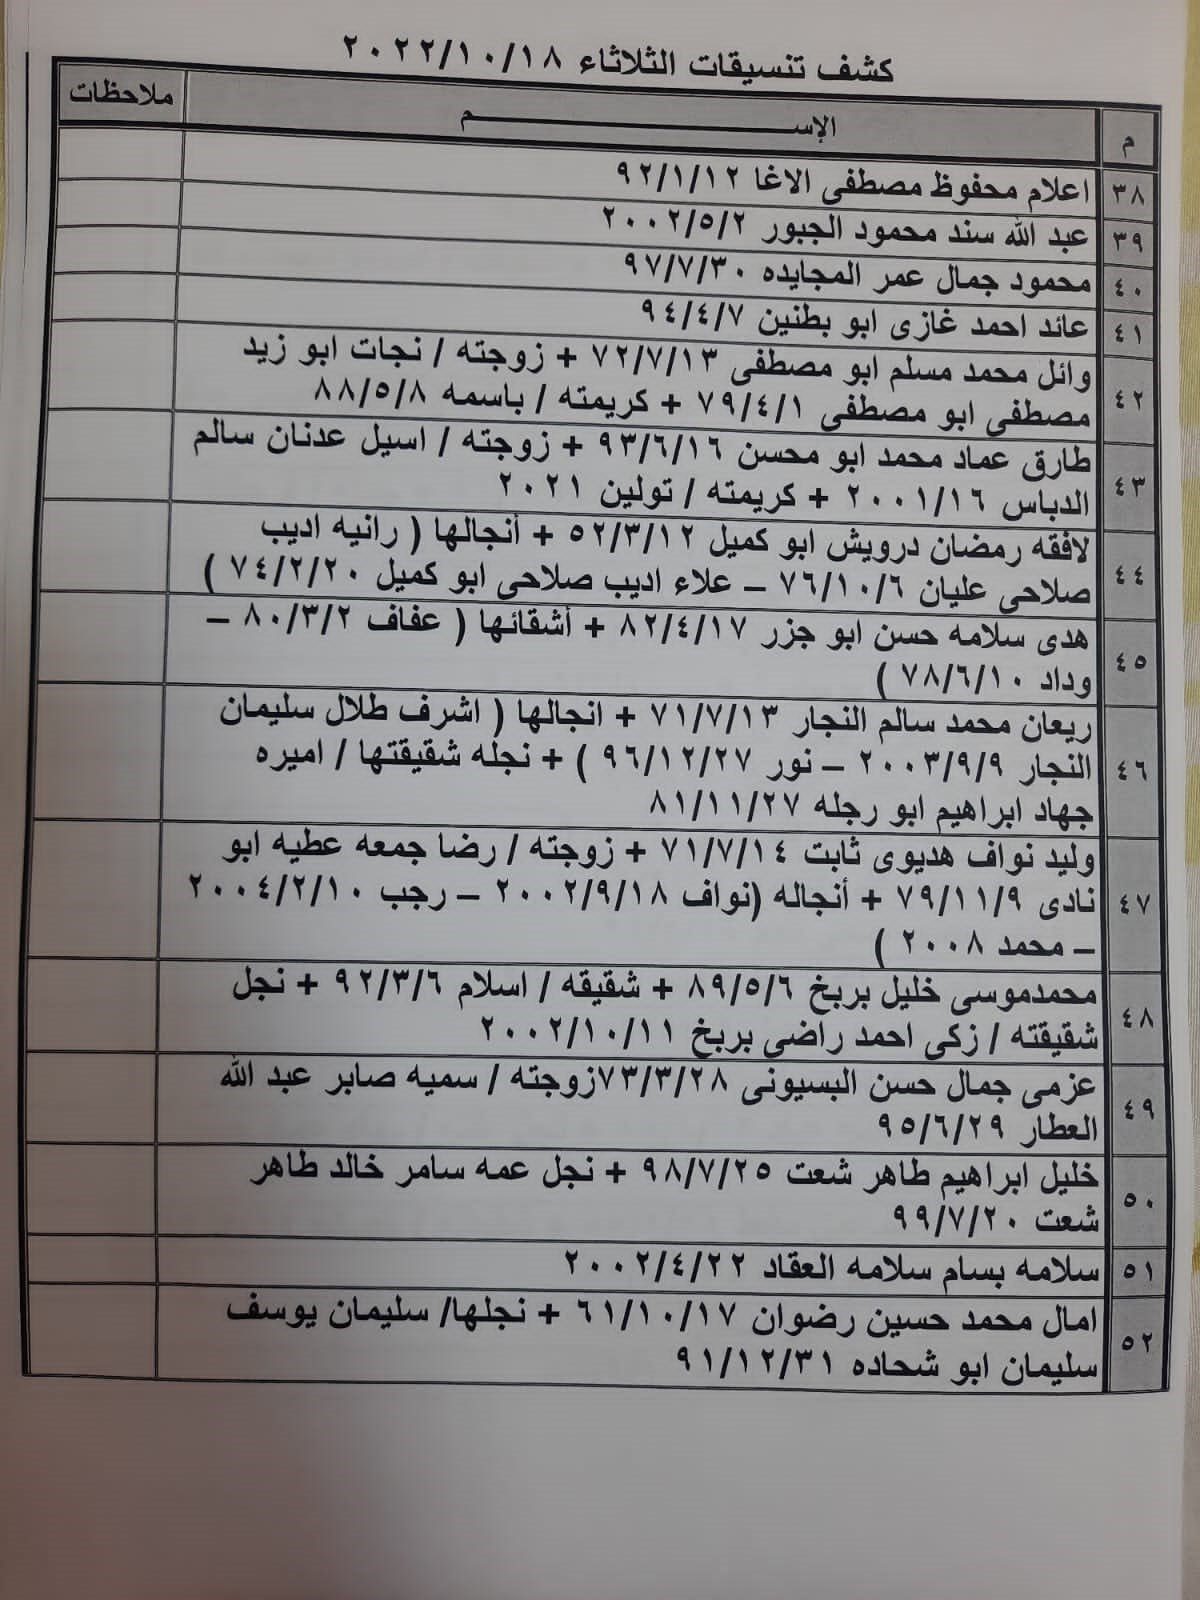 كشف تنسيقات الثلاثاء ٢٠٢٢/١٠/١٨
م الإســـــــــــــــــم ملاحظات
٣٨ اعلام محفوظ مصطفى الاغا ٩٢/١/١٢
٣٩ عبد الله سند محمود الجبور ٢٠٠٢/٥/٢
٤٠ محمود جمال عمر المجايده ٩٧/٧/٣٠
٤١ عائد احمد غازى ابو بطنين ٩٤/٤/٧
٤٢ وائل محمد مسلم ابو مصطفى ٧٢/٧/١٣ + زوجته / نجات ابو زيد
مصطفى ابو مصطفى ٧٩/٤/١ + كريمته / باسمه ٨٨/٥/٨
٤٣ طارق عماد محمد ابو محسن ٩٣/٦/١٦ + زوجته / اسيل عدنان سالم
الدباس ٢٠٠١/١٦ + كريمته / تولين ٢٠٢١
٤٤ لافقه رمضان درويش ابو كميل ٥٢/٣/١٢ + أنجالها ( رانيه اديب
صلاحى عليان ٧٦/١٠/٦ – علاء اديب صلاحى ابو كميل ٧٤/٢/٢٠ )
٤٥ هدى سلامه حسن ابو جزر ٨٢/٤/١٧ + أشقائها ( عفاف ٨٠/٣/٢ –
وداد ٧٨/٦/١٠ )
٤٦ ريعان محمد سالم النجار ٧١/٧/١٣ + انجالها ( اشرف طلال سليمان
النجار ٢٠٠٣/٩/٩ – نور ٩٦/١٢/٢٧ ) + نجله شقيقتها / اميره
جهاد ابراهيم ابو رجله ٨١/١١/٢٧
٤٧ وليد نواف هديوى ثابت ٧١/٧/١٤ + زوجته / رضا جمعه عطيه ابو
نادى ٧٩/١١/٩ + أنجاله (نواف ٢٠٠٢/٩/١٨ – رجب ٢٠٠٤/٢/١٠
– محمد ٢٠٠٨ )
٤٨ محمدموسى خليل بربخ ٨٩/٥/٦ + شقيقه / اسلام ٩٢/٣/٦ + نجل
شقيقته / زكى احمد راضى بربخ ٢٠٠٢/١٠/١١
٤٩ عزمى جمال حسن البسيونى ٧٣/٣/٢٨زوجته / سميه صابر عبد الله
العطار ٩٥/٦/٢٩
٥٠ خليل ابراهيم طاهر شعت ٩٨/٧/٢٥ + نجل عمه سامر خالد طاهر
شعت ٩٩/٧/٢٠
٥١ سلامه بسام سلامه العقاد ٢٠٠٢/٤/٢٢
٥٢ امال محمد حسين رضوان ٦١/١٠/١٧ + نجلها/ سليمان يوسف
سليمان ابو شحاده ٩١/١٢/٣١